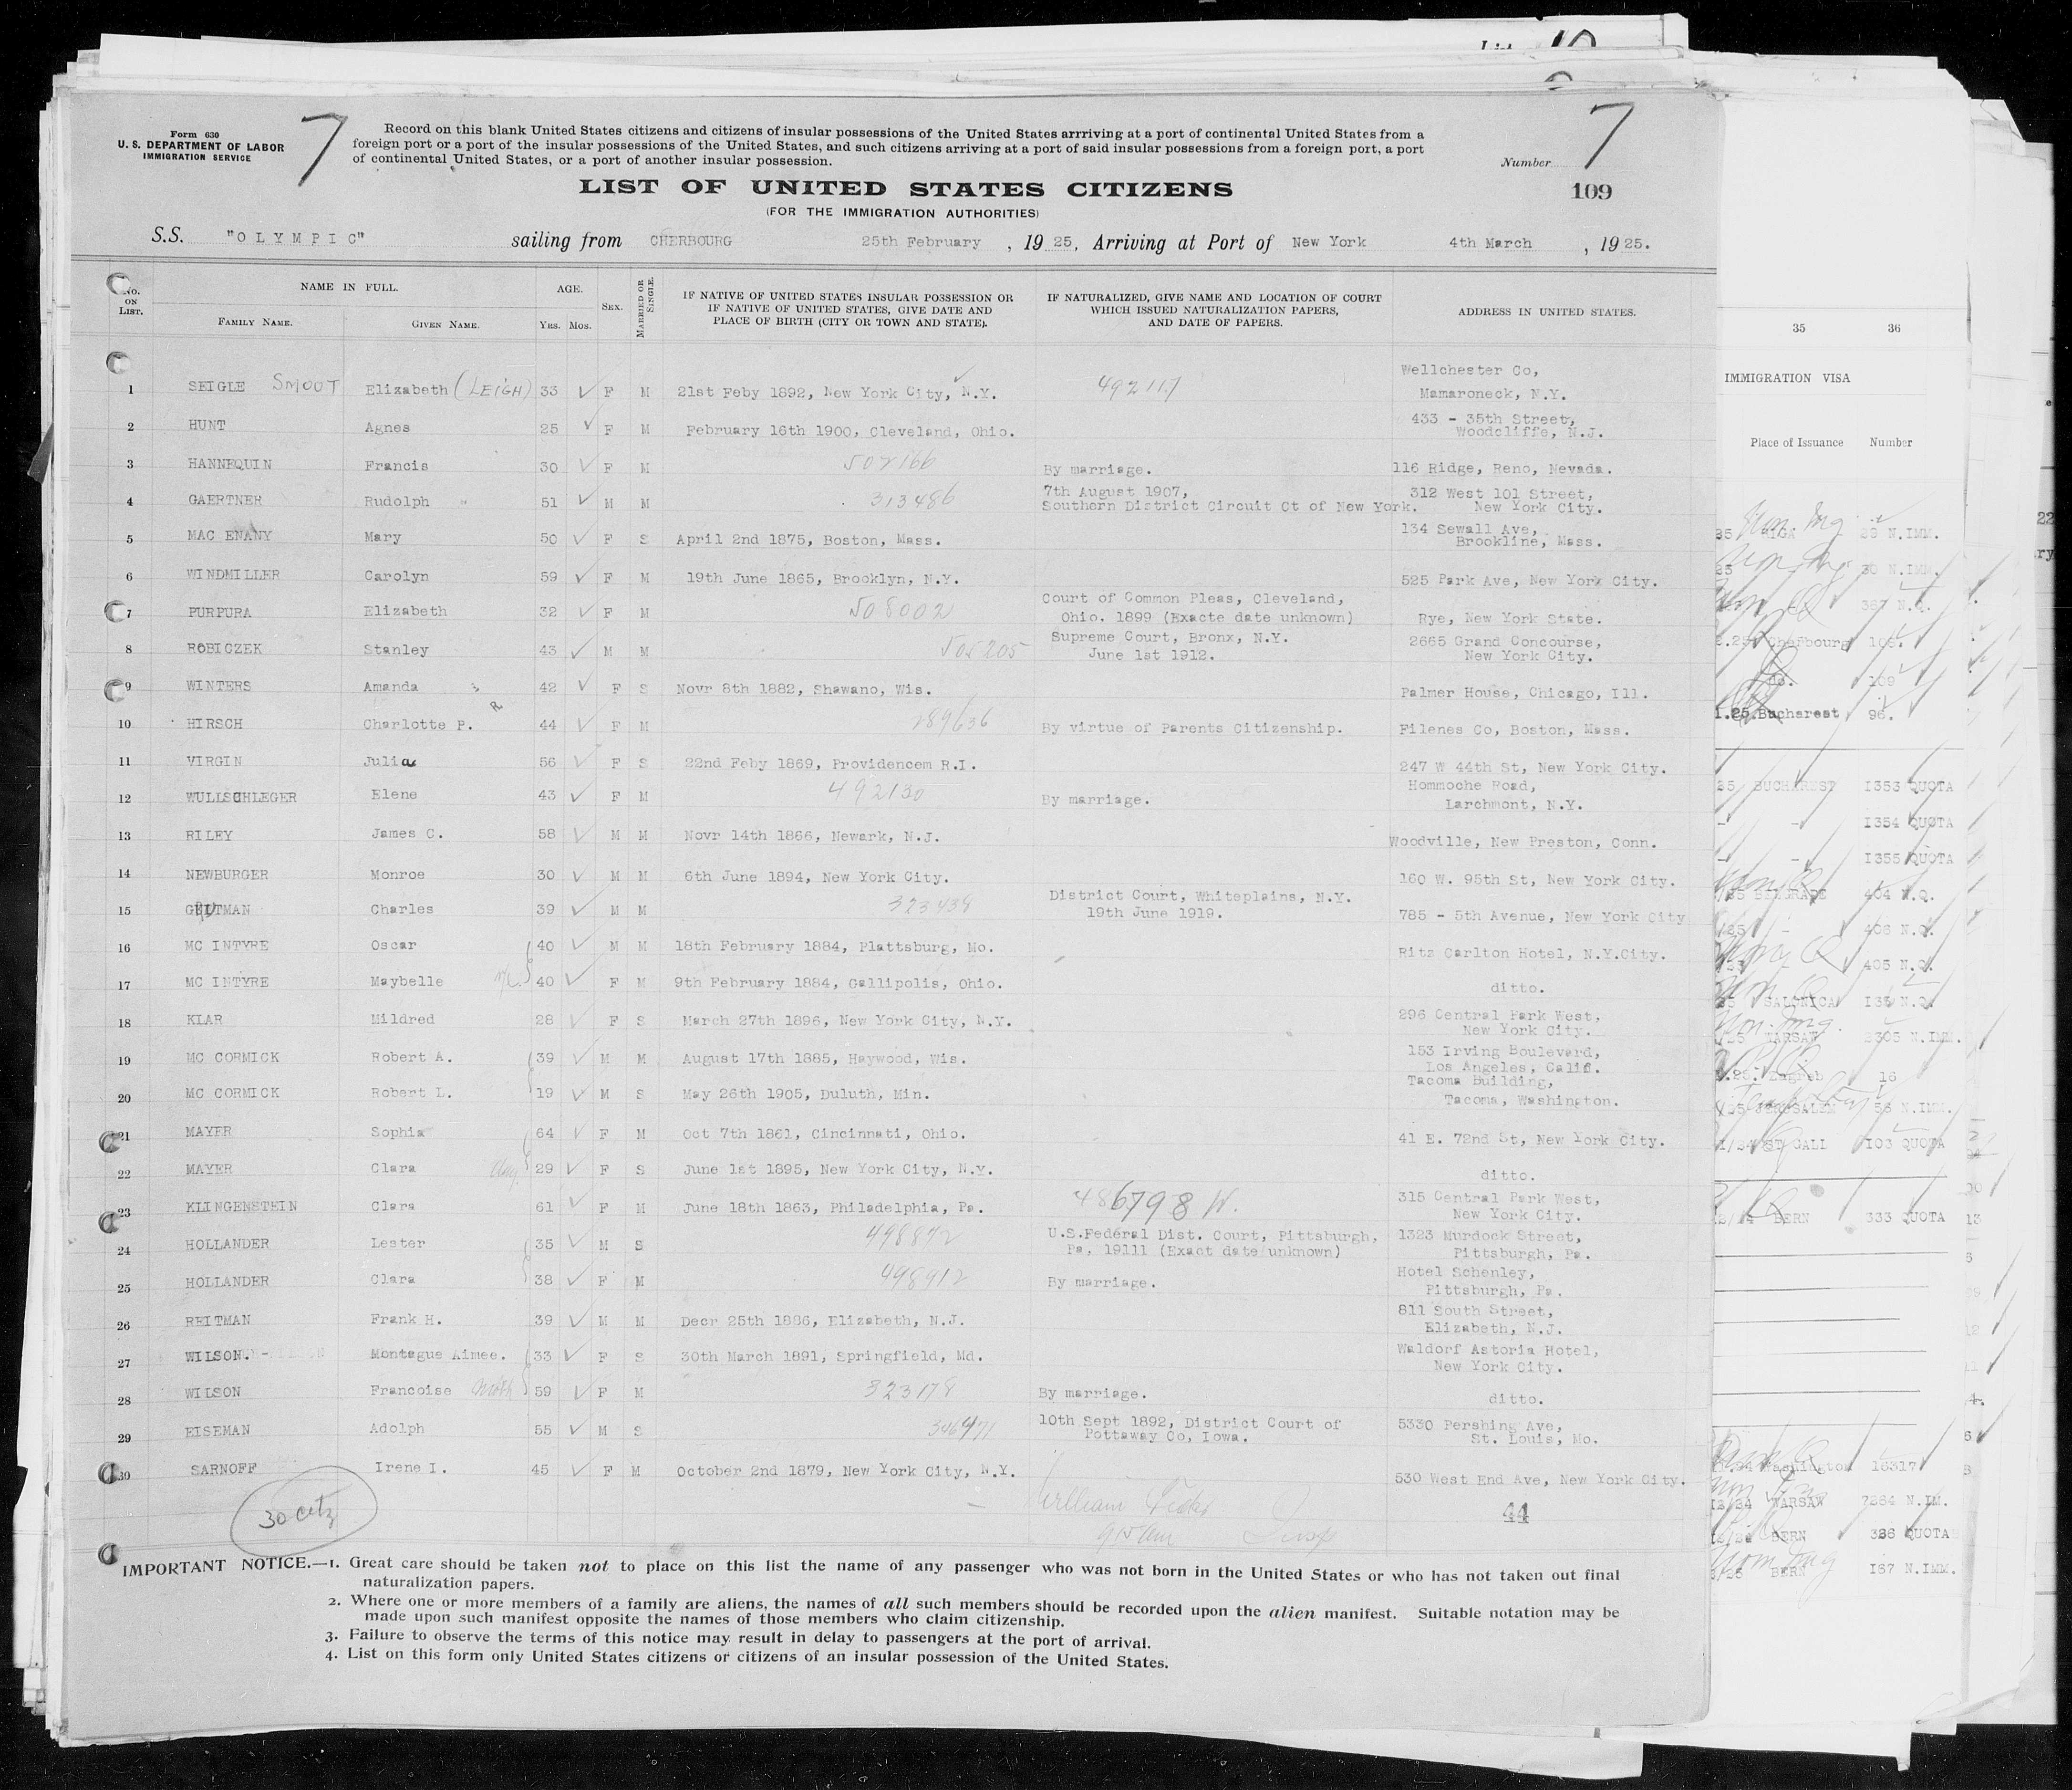 Form 630
U. S. DEPARTMENT OF LABOR
IMMIGRATION SERVICE
7
Record on this blank United States citizens and citizens of insular possessions of the United States arrriving at a port of continental United States from a
foreign port or a port of the insular possessions of the United States, and such citizens arriving at a port of said insular possessions from a foreign port, a port
of continental United States, or a port of another insular possession.
Number 7
LIST OF UNITED STATES CITIZENS
109
(FOR THE IMMIGRATION AUTHORITIES)
S.S. "OLYMPIC" sailing from CHERBOURG 25th February , 19 25, Arriving at Port of New York 4th March , 19 25.
No. ON LIST. NAME IN FULL. AGE. SEX. MARRIED OR SINGLE. IF NATIVE OF UNITED STATES INSULAR POSSESSION OR IF NATIVE OF UNITED STATES, GIVE DATE AND PLACE OF BIRTH (CITY OR TOWN AND STATE). IF NATURALIZED, GIVE NAME AND LOCATION OF COURT WHICH ISSUED NATURALIZATION PAPERS, AND DATE OF PAPERS. ADDRESS IN UNITED STATES.
FAMILY NAME. GIVEN NAME. YRS. MOS.
1 SEIGLE SMOOT Elizabeth (LEIGH) 33 F M 21st Feby 1892, New York City, N.Y. 492117 Wellchester Co,
Mamaroneck, N.Y.
2 HUNT Agnes 25 F M February 16th 1900, Cleveland, Ohio. 433 - 35th Street,
Woodcliffe, N.J.
3 HANNEQUIN Francis 30 F M 502166 By marriage. 116 Ridge, Reno, Nevada.
4 GAERTNER Rudolph 51 M M 313486 7th August 1907, 312 West 101 Street,
Southern District Circuit Ct of New York. New York City.
5 MAC ENANY Mary 50 F S April 2nd 1875, Boston, Mass. 134 Sewall Ave,
Brookline, Mass.
6 WINDMILLER Carolyn 59 F M 19th June 1865, Brooklyn, N.Y. 525 Park Ave, New York City.
7 PURPURA Elizabeth 32 F M 508002 Court of Common Pleas, Cleveland,
Ohio. 1899 (Exacte date unknown) Rye, New York State.
8 ROBICZEK Stanley 43 M M 505205 Supreme Court, Bronx, N.Y. 2665 Grand Concourse,
June 1st 1912. New York City.
9 WINTERS Amanda 42 F S Novr 8th 1882, Shawano, Wis. Palmer House, Chicago, Ill.
10 HIRSCH Charlotte P. R 44 F M 289636 By virtue of Parents Citizenship. Filenes Co, Boston, Mass.
11 VIRGIN Julia 56 F S 22nd Feby 1869, Providencem R.I. 247 W 44th St, New York City.
12 WULLSCHLEGER Elene 43 F M 492130 By marriage. Hommoche Road,
Larchmont, N.Y.
13 RILEY James C. 58 M M Novr 14th 1866, Newark, N.J. Woodville, New Preston, Conn.
14 NEWBURGER Monroe 30 M M 6th June 1894, New York City. 160 W. 95th St, New York City.
15 Charles 39 M M 323439 District Court, Whiteplains, N.Y.
19th June 1919. 785 - 5th Avenue, New York City
16 MC INTYRE Oscar 40 M M 18th February 1884, Plattsburg, Mo. Ritz Carlton Hotel, N.Y.City.
17 MC INTYRE Maybelle 40 F M 9th February 1884, Gallipolis, Ohio. ditto.
18 KLAR Mildred 28 F S March 27th 1896, New York City, N.Y. 296 Central Park West,
New York City.
19 MC CORMICK Robert A. 39 M M August 17th 1885, Haywood, Wis. 153 Irving Boulevard,
Los Angeles, Calif.
20 MC CORMICK Robert L. 19 M S May 26th 1905, Duluth, Min. Tacoma Building,
Tacoma, Washington.
21 MAYER Sophia 64 F M Oct 7th 1861, Cincinnati, Ohio. 41 E. 72nd St, New York City.
22 MAYER Clara 29 F S June 1st 1895, New York City, N.Y. ditto.
23 KLINGENSTEIN Clara 61 F M June 18th 1863, Philadelphia, Pa. 486798 W. 315 Central Park West,
New York City.
24 HOLLANDER Lester 35 M S 498872 U.S.Federal Dist. Court, Pittsburgh, 1323 Murdock Street,
Pa, 19111 (Exact date unknown) Pittsburgh, Pa.
25 HOLLANDER Clara 38 F M 498912 By marriage. Hotel Schenley,
Pittsburgh, Pa.
26 REITMAN Frank H. 39 M M Decr 25th 1886, Elizabeth, N.J. 811 South Street,
Elizabeth, N.J.
27 WILSON. Montague Aimee. 33 F S 30th March 1891, Springfield, Md. Waldorf Astoria Hotel,
New York City.
28 WILSON Francoise 59 F M 323178 By marriage. ditto.
29 EISEMAN Adolph 55 M S 346471 10th Sept 1892, District Court of 5330 Pershing Ave,
Pottaway Co, Iowa. St. Louis, Mo.
30 SARNOFF Irene I. 45 F M October 2nd 1879, New York City, N.Y. 530 West End Ave, New York City.
30 citz
William
44
IMPORTANT NOTICE.—1. Great care should be taken not to place on this list the name of any passenger who was not born in the United States or who has not taken out final
naturalization papers.
2. Where one or more members of a family are aliens, the names of all such members should be recorded upon the alien manifest. Suitable notation may be
made upon such manifest opposite the names of those members who claim citizenship.
3. Failure to observe the terms of this notice may result in delay to passengers at the port of arrival.
4. List on this form only United States citizens or citizens of an insular possession of the United States.
35 36
IMMIGRATION VISA
Place of Issuance Number
RIGA 28 N.IMM.
30 N.IMM.
367 N.Q.
Cherbourg 108.
do. 109
Bucharest 96.
BUCHAREST 1353 QUOTA
1354 QUOTA
1355 QUOTA
BELGRADE 404 N.Q.
406 N.Q.
405 N.Q.
SALONICA 136 N.Q.
WARSAW 2305 N.IMM.
Zagreb 16
JERUSALEM 56 N.IMM.
ST GALL 103 QUOTA
BERN 333 QUOTA
Washington 18317
WARSAW 7264 N.IM.
BERN 326 QUOTA
BERN 167 N.IMM.